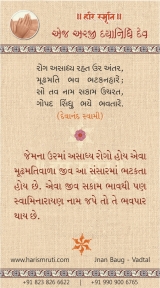 ॥ હરિ સ્મૃતિ ॥
એજ અરજી દયાનિધિ દેવ
રોગ અસાધ્ય રહત ઉર અંતર,
મૂઢમતિ ભવ ભટકનહારે;
સો તવ નામ સકામ ઉચરત,
ગોપદ સિંધુ ભયે ભવતારે.
(દેવાનંદ સ્વામી)
જેમના ઉરમાં અસાધ્ય રોગો હોય એવા
મૂઢમતિવાળા જીવ આ સંસારમાં ભટકતા
હોય છે. એવા જીવ સકામ ભાવથી પણ
સ્વામિનારાયણ નામ જપે તો તે ભવપાર
થાય છે.
www.harismruti.com Jnan Baug - Vadtal
+91 823 826 6622 | +91 990 900 6765